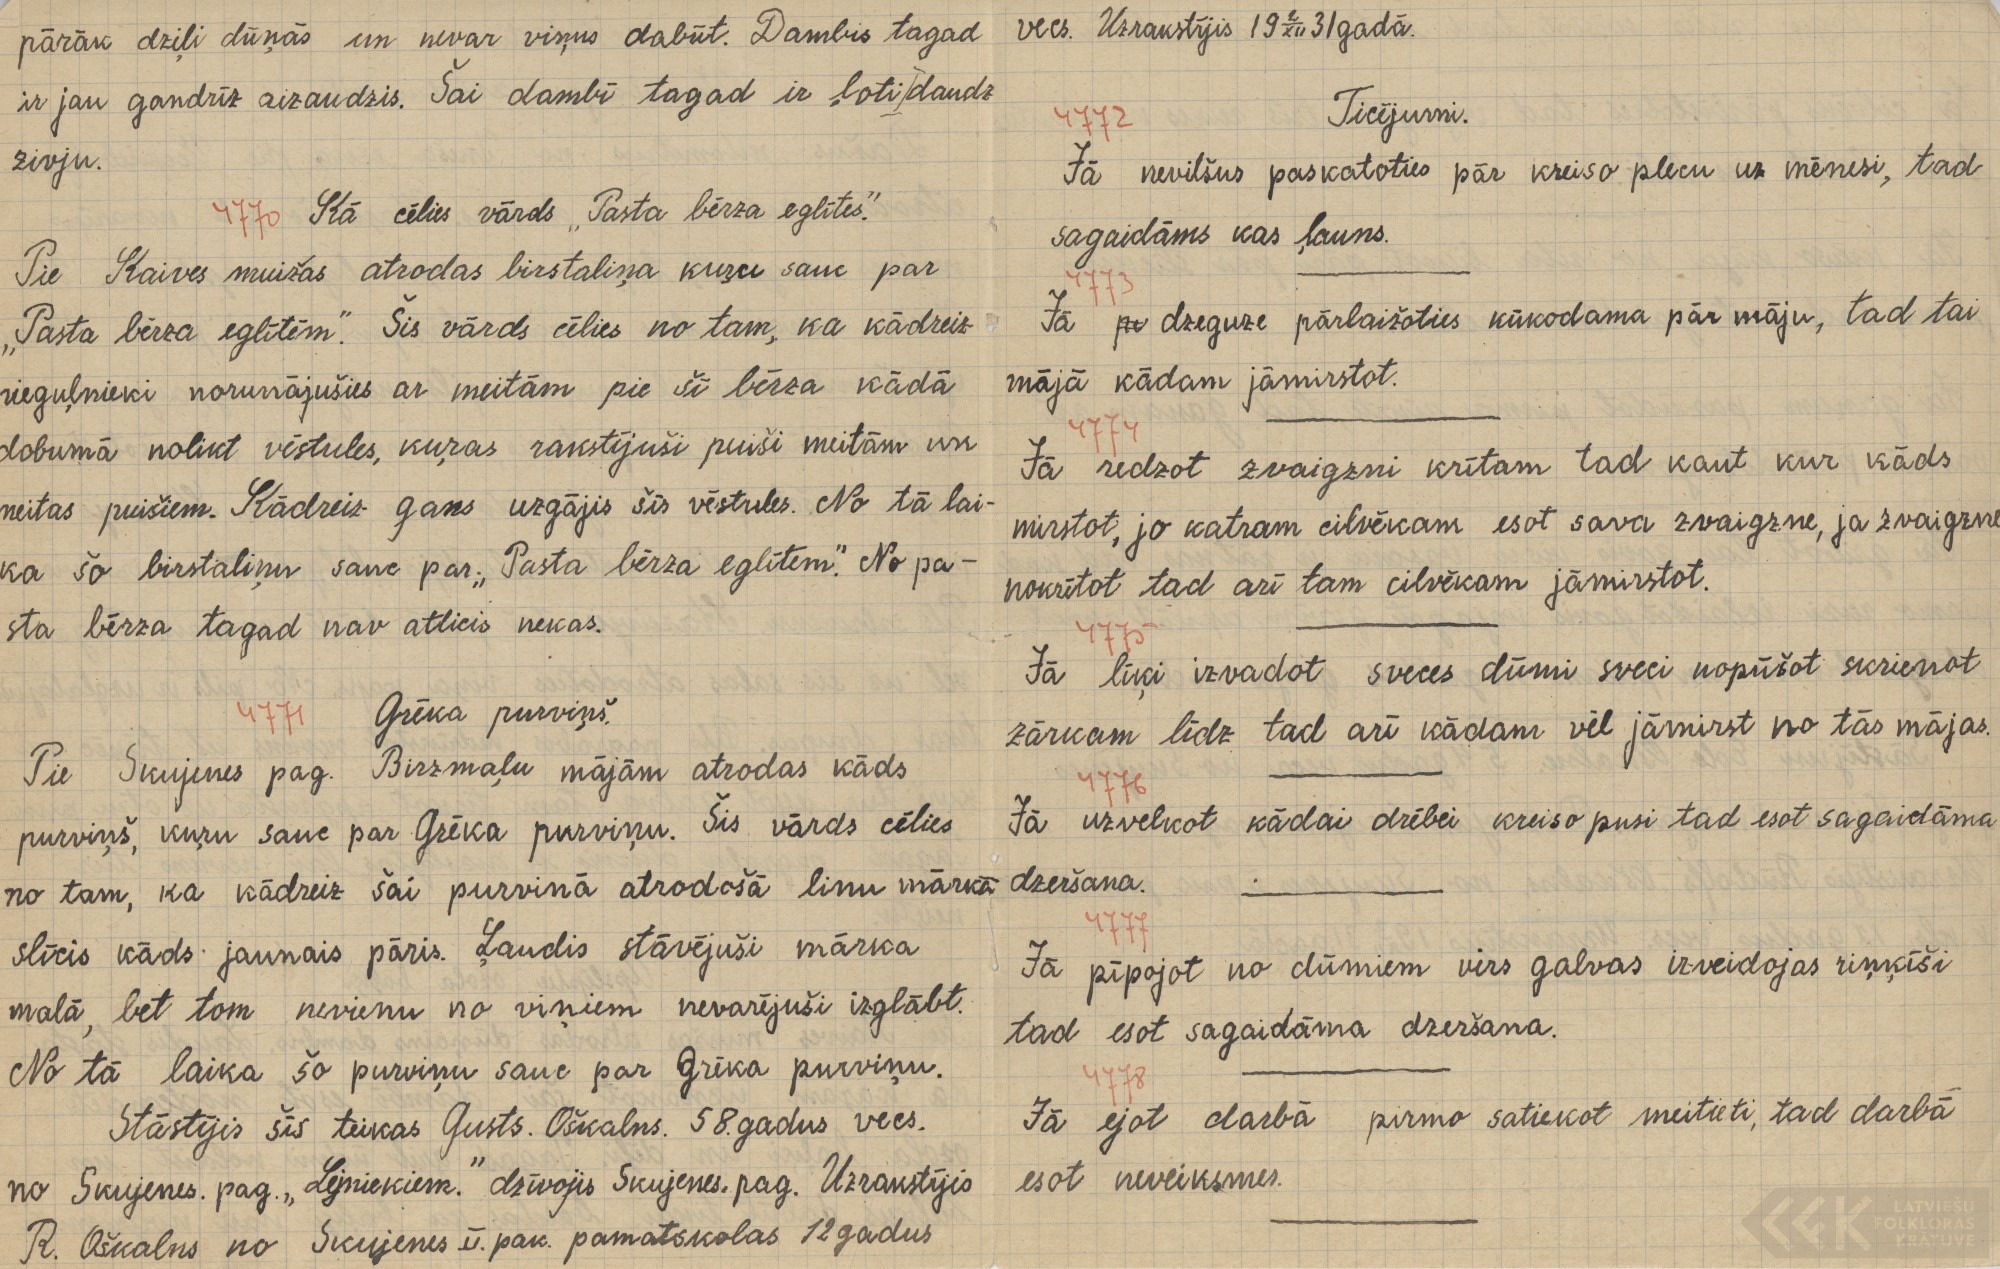 pārāk dziļi dūņās un nevar viņus dabūt. Dambis tagad
ir jau gandrīz aizaudzis. Šai dambī tagad ir ļoti daudz
zivju.
4770 Kā cēlies vārds „Pasta bērza eglītes."
Pie Kaives muižas atrodas birstaliņa kuŗu sauc par
„Pasta bērza eglītēm". Šis vārds cēlies no tam, ka kādreiz
pieguļnieki norunājušies ar meitām pie šī bērza kādā
dobumā nolikt vēstules, kuŗas rakstījuši puiši meitām un
meitas puišiem. Kādreiz gans uzgājis šīs vēstules. No tā lai-
ka šo birstaliņu sauc par „Pasta bērza eglītēm". No pa-
sta bērza tagad nav atlicis nekas.
4771 Grēka purviņš.
Pie Skujenes pag. Birzmaļu mājām atrodas kāds
purviņš, kuŗu sauc par Grēka purviņu. Šis vārds cēlies
no tam, ka kādreiz šai purvinā atrodošā linu mārkā
slīcis kāds jaunais pāris. Ļaudis stāvējuši mārka
malā, bet tom nevienu no viņiem nevarējuši izglābt.
No tā laika šo purviņu sauc par Grēka purviņu.
Stāstījis šīs teikas Gusts. Oškalns. 58 gadus vecs.
no Skujenes. pag. „Lejniekiem." dzīvojis Skujenes. pag. Uzrakstījis
R. Oškalns no Skujenes II. pak. pamatskolas 12 gadus
vecs. Uzrakstījis 19 2/XII 31 gadā.
4772 Ticējumi.
Jā nevilšus paskatoties pār kreiso plecu uz mēnesi, tad
sagaidāms kas ļauns.
4773
Jā pe dzeguze pārlaižoties kūkodama pār māju, tad tai
mājā kādam jāmirstot.
4774
Jā redzot zvaigzni krītam tad kaut kur kāds
mirstot, jo katram cilvēkam esot sava zvaigzne, ja zvaigzne
nokrītot tad arī tam cilvēkam jāmirstot.
4775
Jā līķi izvadot sveces dūmi sveci nopūšot skrienot
zārkam līdz tad arī kādam vēl jāmirst no tās mājas.
4776
Jā uzvelkot kādai drēbei kreiso pusi tad esot sagaidāma
dzeršana.
4777
Jā pīpojot no dūmiem virs galvas izveidojas riņķīši
tad esot sagaidāma dzeršana.
4778
Jā ejot darbā pirmo satiekot meitieti, tad darbā
esot neveiksmes.
LATVIEŠU
FOLKLORAS
KRĀTUVE